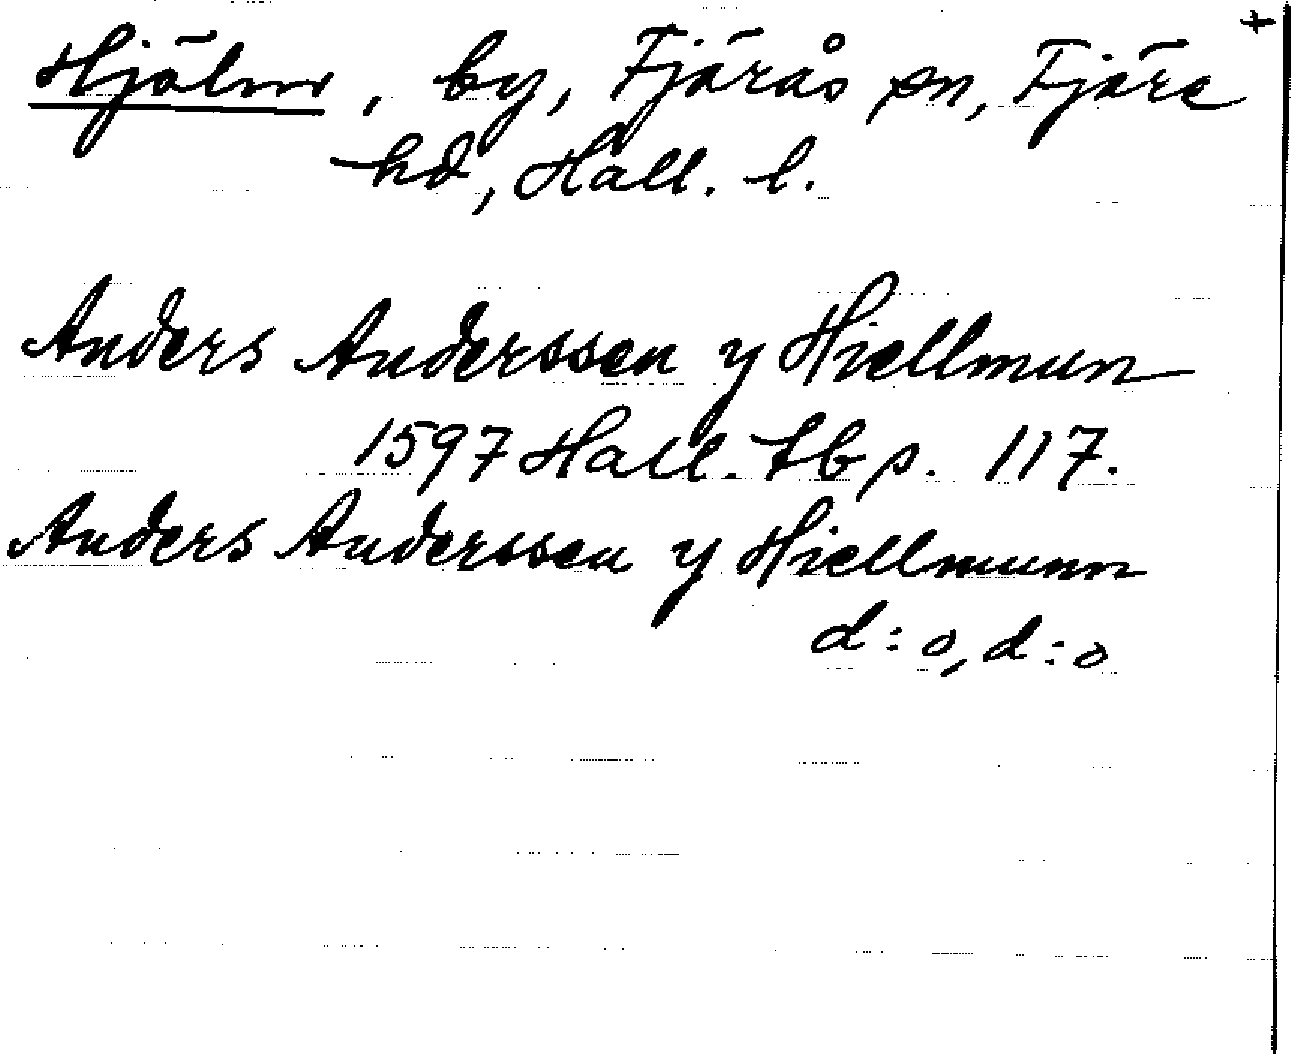 +
Hjälm, by, Fjärås sn, Fjäre
hd, Hall. l.
Anders Anderssen y Hiellmun
1597 Hall. tb p. 117.
Anders Anderssen y Hiellmunn
d:o, d:o